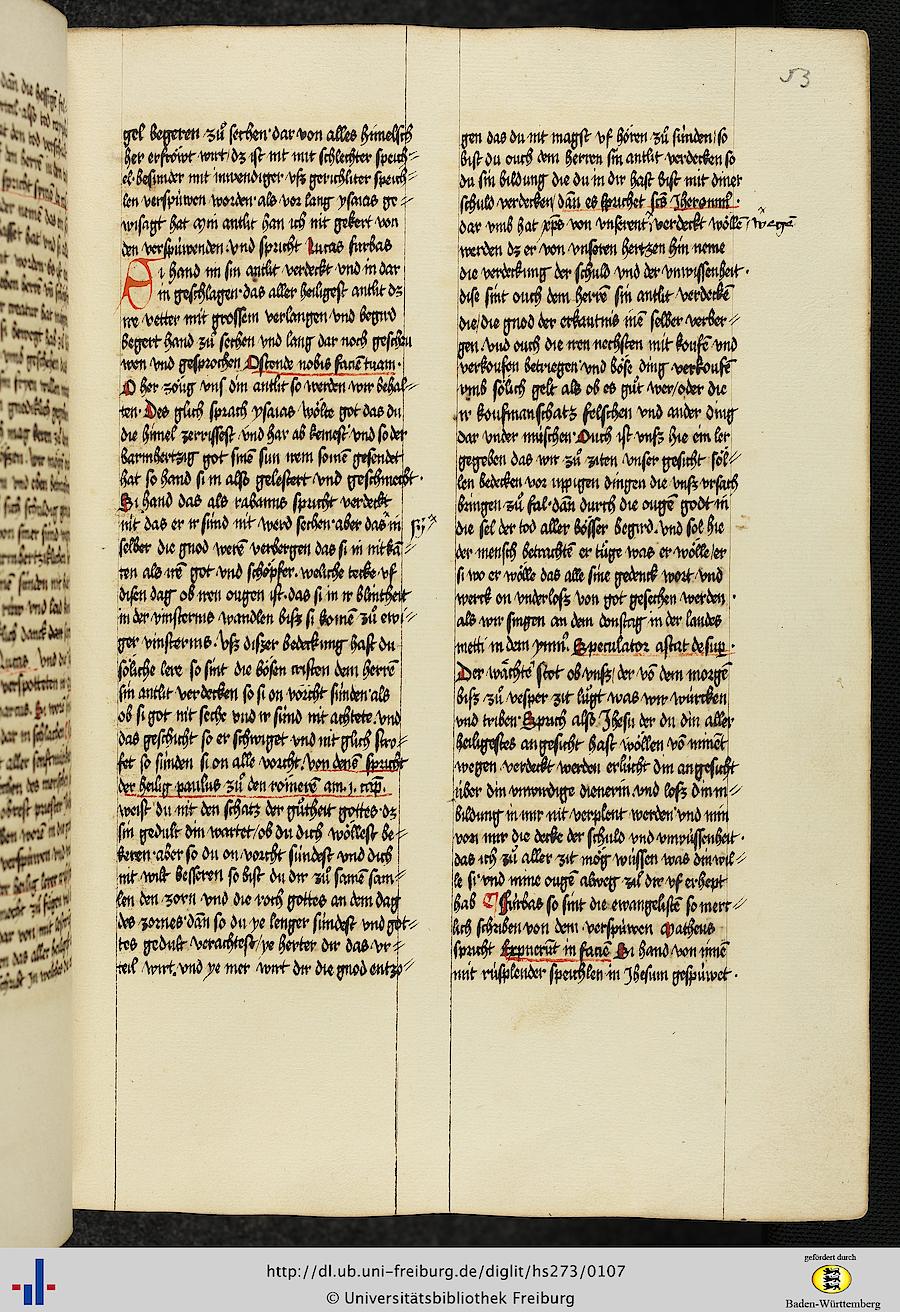 53
gel begeren zů sechen · dar von alles himelsch
her erfröwt wirt / dz ist nit mit schlechter speich=
el · besunder mit inwendiger vsz gerichtiter speich=
len verspüwen worden · als vor lang ysaias ge=
wisagt hat Min antlit han ich nit gekert von
den verspüwenden · vnd spricht Lucas fürbas
Si hand im sin antlit verdeckt vnd in dar
in geschlagen · das aller heiligest antlit dz
nre vetter mit grossem verlangen vnd begird
begert hand zů sechen vnd lang dar noch geschru
wen vnd gesprochen Ostende nobis faciē tuam ·
O her zöug vns din antlit so werden wir behal=
ten · Des glich sprach ysaias wölte got das du
die himel zerrissest vnd har ab kemest vnd so der
barmhertzig got sinē sun irem somē gesendet
hat so hand si in also gelestert vnd geschmecht ·
Si hand das als rabanus spricht verdeckt
nit das er ir sünd nit werd sechen · aber das in
selber die gnod werē verbergen das si in nit kā=
ten als irē got vnd schöpfer · weliche tecke vf
disen dag ob iren ougen ist · das si in ir blintheit
in der vinsternis wandlen bisz si komē zů ewi=
ger vinsternis · Vsz diszer bedeckung hast du
söliche lere so sint die bösen cristen dem herrē
sin antlit verdecken so si on vorcht sünden als
ob si got nit seche vnd ir sünd nit achtete · vnd
das geschicht so er schwiget vnd nit glich stro=
fet so sünden si on alle vorcht · von denē spricht
der heilig paulus zů den römeren am · j · cap̄ ·
weist du nit den schatz der gůtheit gottes · dz
sin gedult din wartet / ob du dich wöllest be=
keren · aber so du on vorcht sündest vnd dich
nit wilt besseren so bist du dir zů samē sam=
len den zorn vnd die roch gottes an dem dag
des zornes · dān so du ye lenger sündest vnd got=
tes gedult verachtest / ye herter dir das vr=
teil wirt · vnd ye mer wirt dir die gnod entzo=
gen das du nit magst vf hören zů sünden / so
bist du ouch dem herren sin antlit verdecken so
du sin bildung die du in dir hast bist mit diner
schuld verdecken / dān es sprichet sc̄s Jheronim̄ ·
dar vmb hat xp̄s von vnserent wegē verdeckt wöllē
werden dz er von vnseren hertzen hin neme
die verdeckung der schuld vnd der vnwissenheit ·
dise sint ouch dem herrē sin antlit verdeckē
die / die gnod der erkantnis inē selber verber=
gen · vnd ouch die iren nechsten mit koufē vnd
verkoufen betriegen · vnd böse ding verkoufē
vmb sölich gelt als ob es gůt wer / oder die
ir koufmanschatz felschen vnd ander ding
dar vnder müschen · Ouch ist vnsz hie ein ler
gegeben das wir zů ziten vnser gesicht söl=
len bedecken vor üpigen dingen die vnsz vrsach
bringen zů fal · dān durch die ougē godt in
die sel der tod aller bösser begird · vnd sol hie
der mensch betrachtē er tüge was er wölle / er
si wo er wölle das alle sine gedenck wort vnd
werck on vnderlosz von got gesechen werden ·
als wir singen an dem donstig in der laudes
metti in dem ymnō · Speculator astat desup̄ ·
Der wachtē stot ob vnsz / der vō dem morgē
bisz zů vesper zit lůgt was wir würcken
vnd triben · Sprich also Jhesu der du din aller
heiligestes angesicht hast wöllen vō minēt
wegen verdeckt werden erlücht din angesicht
über din vnwirdige dienerin vnd losz din in=
bildung in mir nit verplent werden vnd nim
von mir die decke der schuld vnd vnwüssenheit ·
das ich zů aller zit mög wüssen was din wil=
le si · vnd mine ougē alweg zů dir vf erhept
hab ¶ Fürbas so sint die ewangelistē so merk=
lich schriben von dem verspüwen Matheus
spricht Expuerūt in faciē Si hand von inē
mit rüsplender speichlen in Jhesum gespüwet ·
http://dl.ub.uni-freiburg.de/diglit/hs273/0107
© Universitätsbibliothek Freiburg
gefördert durch
Baden-Württemberg